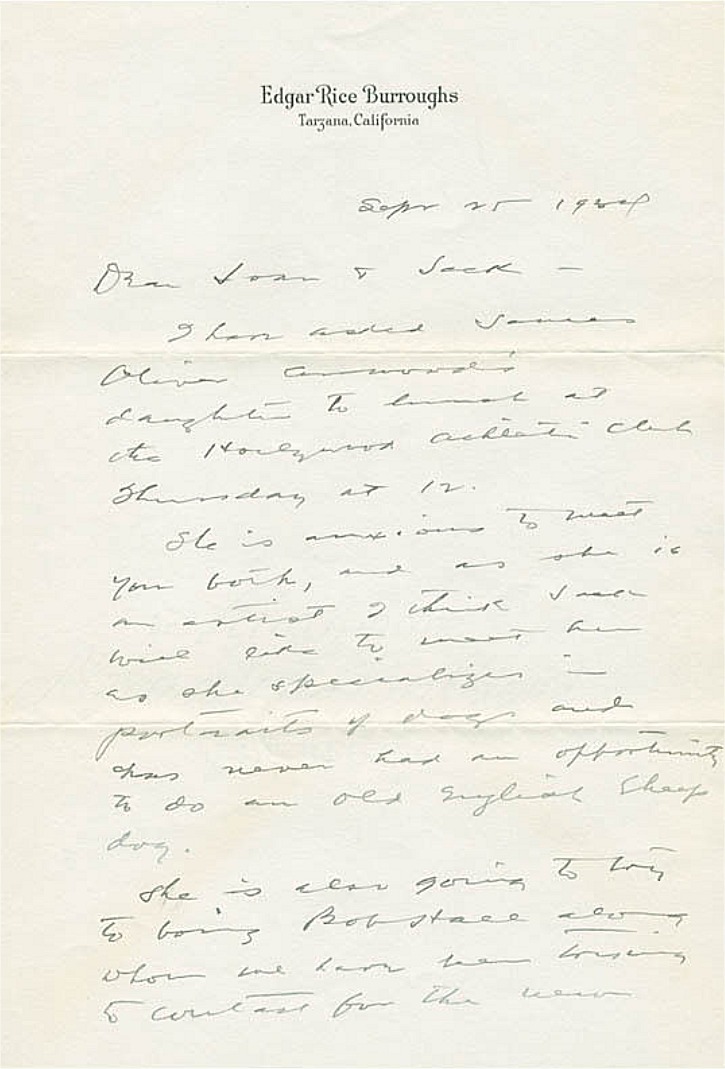 Edgar Rice Burroughs
Tarzana, California
Sept 25
Dear Joan & Jack –
I have asked James
Oliver Curwood's
daughter to lunch at
the Hollywood Athletic Club
Thursday at 12.
She is anxious to meet
you both, and as she is
an artist I think Jack
will like to meet her
as she specializes in
portraits of dogs and
has never had an opportunity
to do an Old English Sheep
dog.
She is also going to try
to bring Bob Stall along
whom we have been trying
to contact for the new